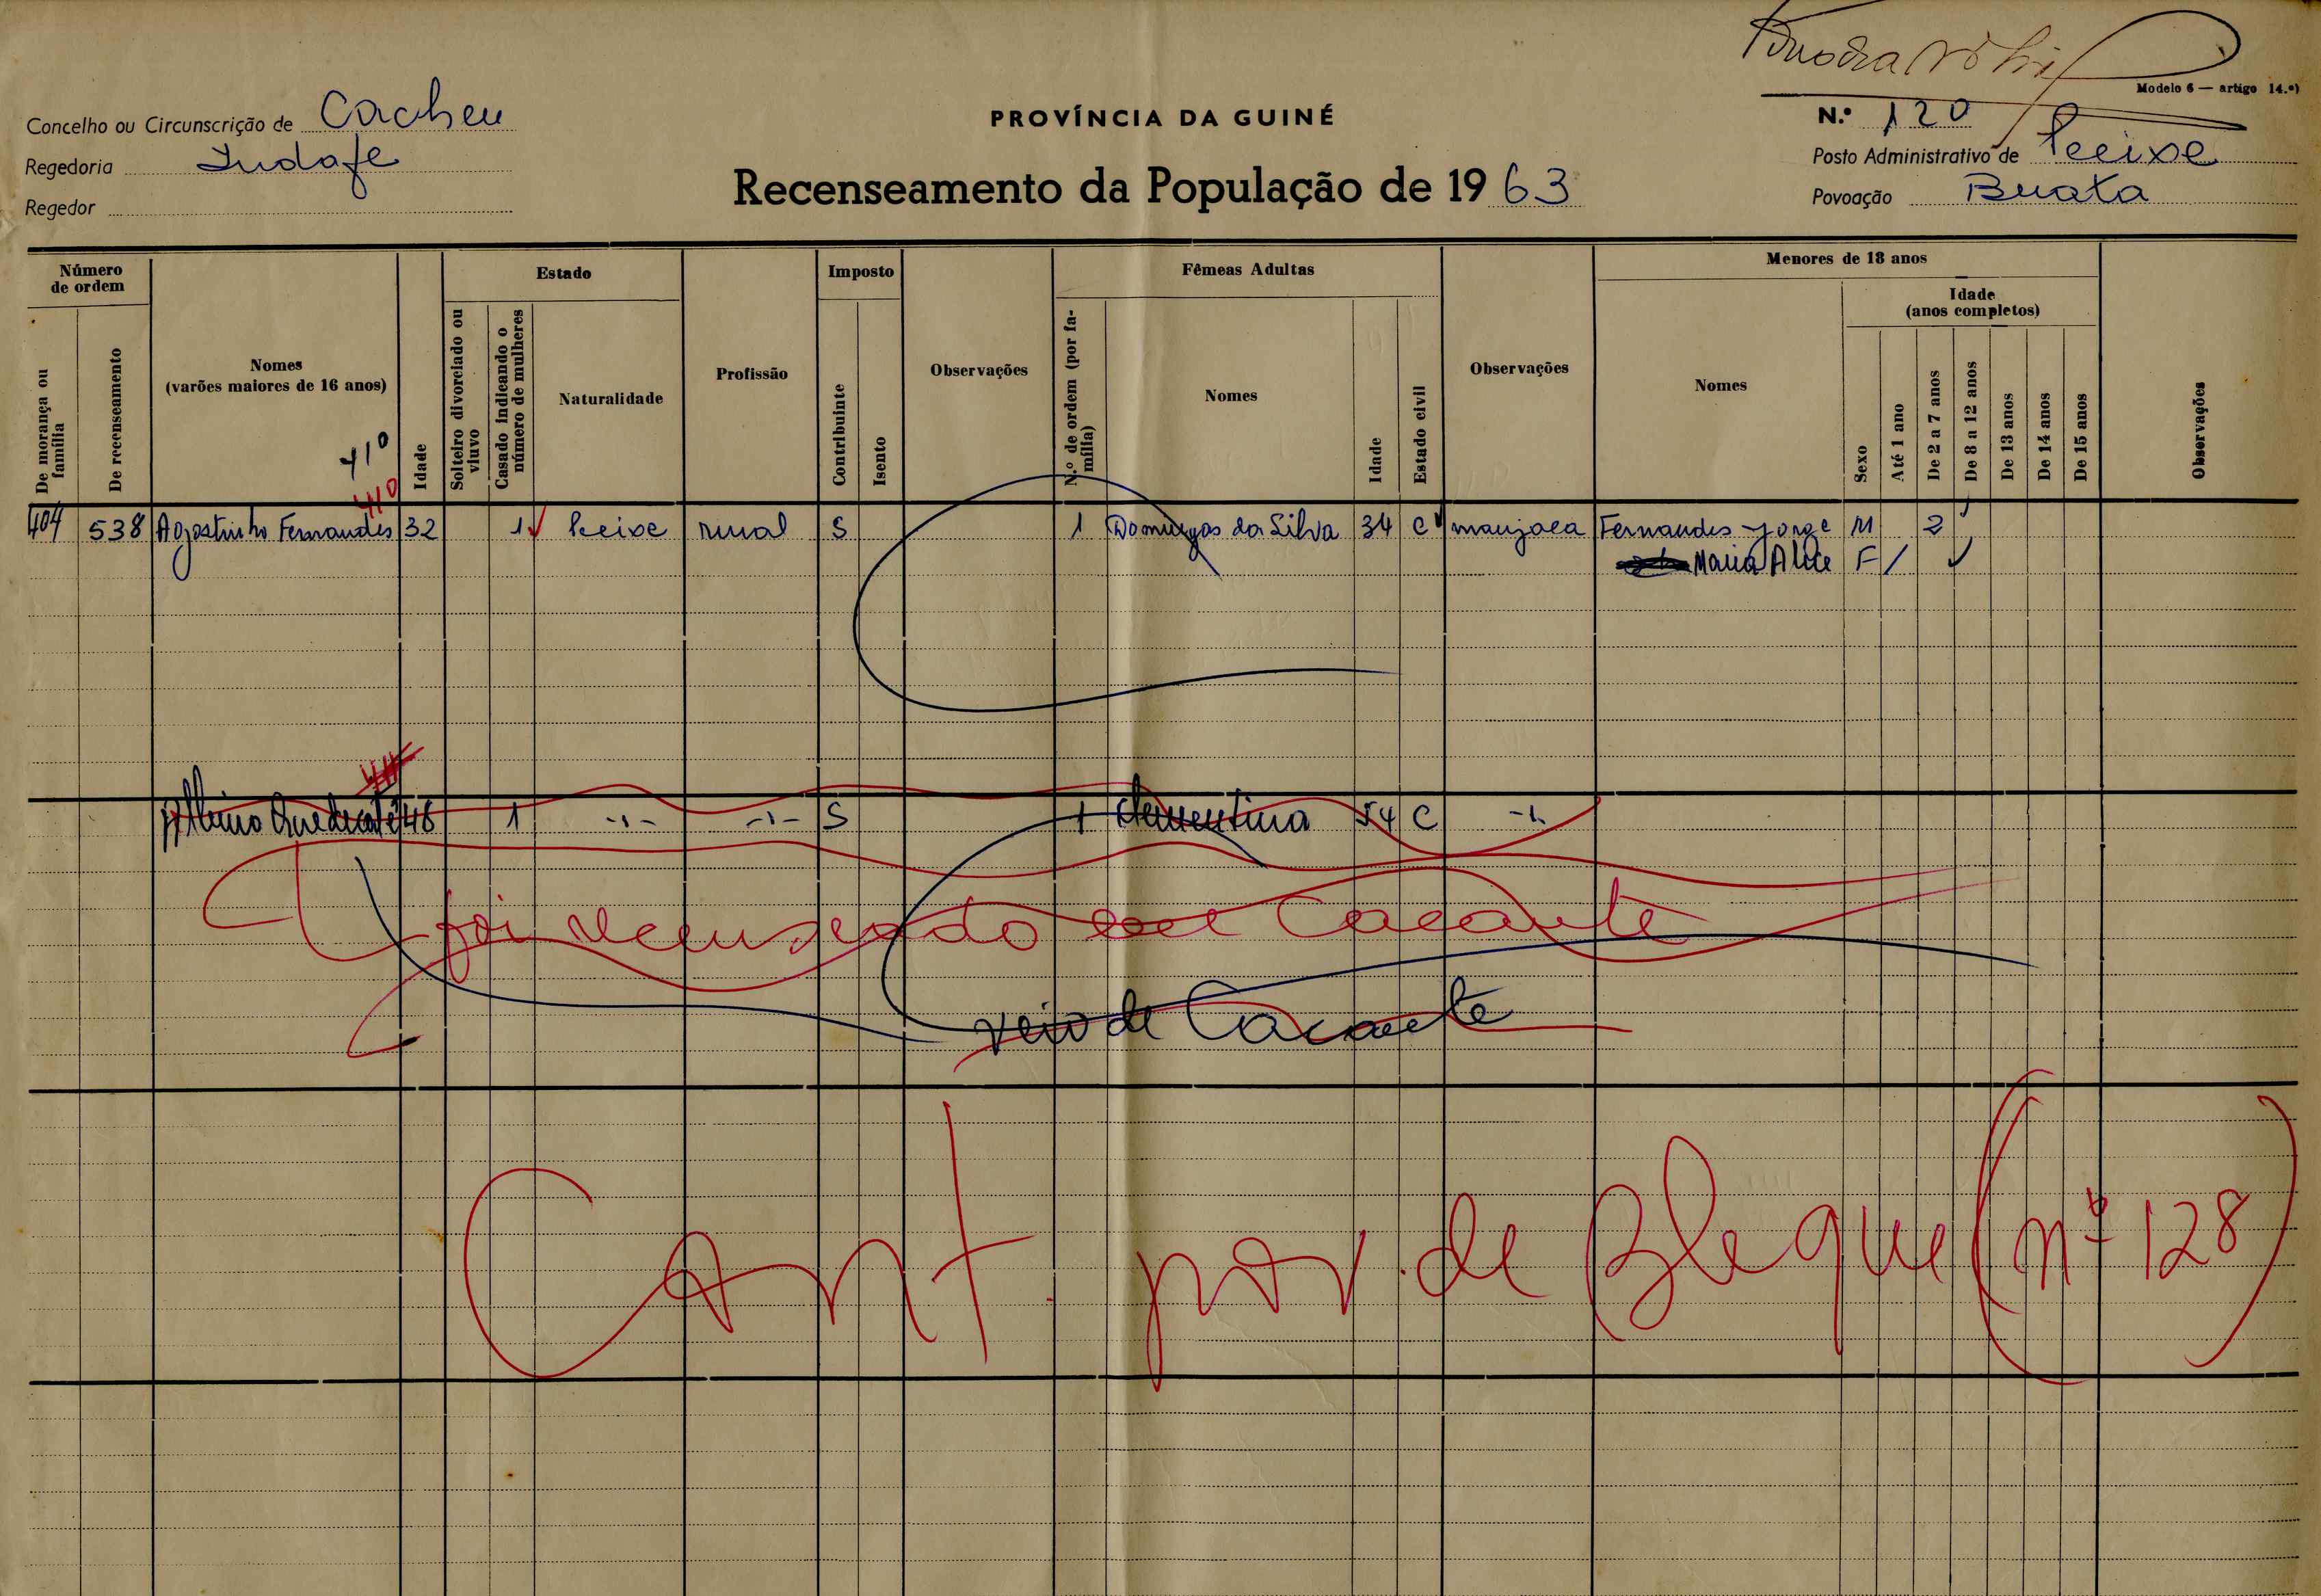 Modelo 6 — artigo 14.º)
Concelho ou Circunscrição de Cacheu
PROVÍNCIA DA GUINÉ
N.º 120
Regedoria Indafe
Posto Administrativo de Peeixe
Regedor
Recenseamento da População de 1963
Povoação Buata
Número de ordem
De morança ou família
De recenseamento
Nomes
(varões maiores de 16 anos)
41º
Idade
Estado
Solteiro divorciado ou viuvo
Casado indicando o número de mulheres
Naturalidade
Profissão
Imposto
Contribuinte
Isento
Observações
Fêmeas Adultas
N.º de ordem (por família)
Nomes
Idade
Estado civil
Observações
Menores de 18 anos
Nomes
Sexo
Idade
(anos completos)
Até 1 ano
De 2 a 7 anos
De 8 a 12 anos
De 13 anos
De 14 anos
De 15 anos
Observações
404 538 Agostinho Fernandes 32 1 rural S 1 Domingas da Silva 34 C manjaca Fernandes Jorge M 2
Maria Alice F /
46 1 -"- -"- S 1 Clementina 54 C -"-
foi recenseado em Cacante
veio de Cacante
Cont. pov. de Bleque (nº 128)